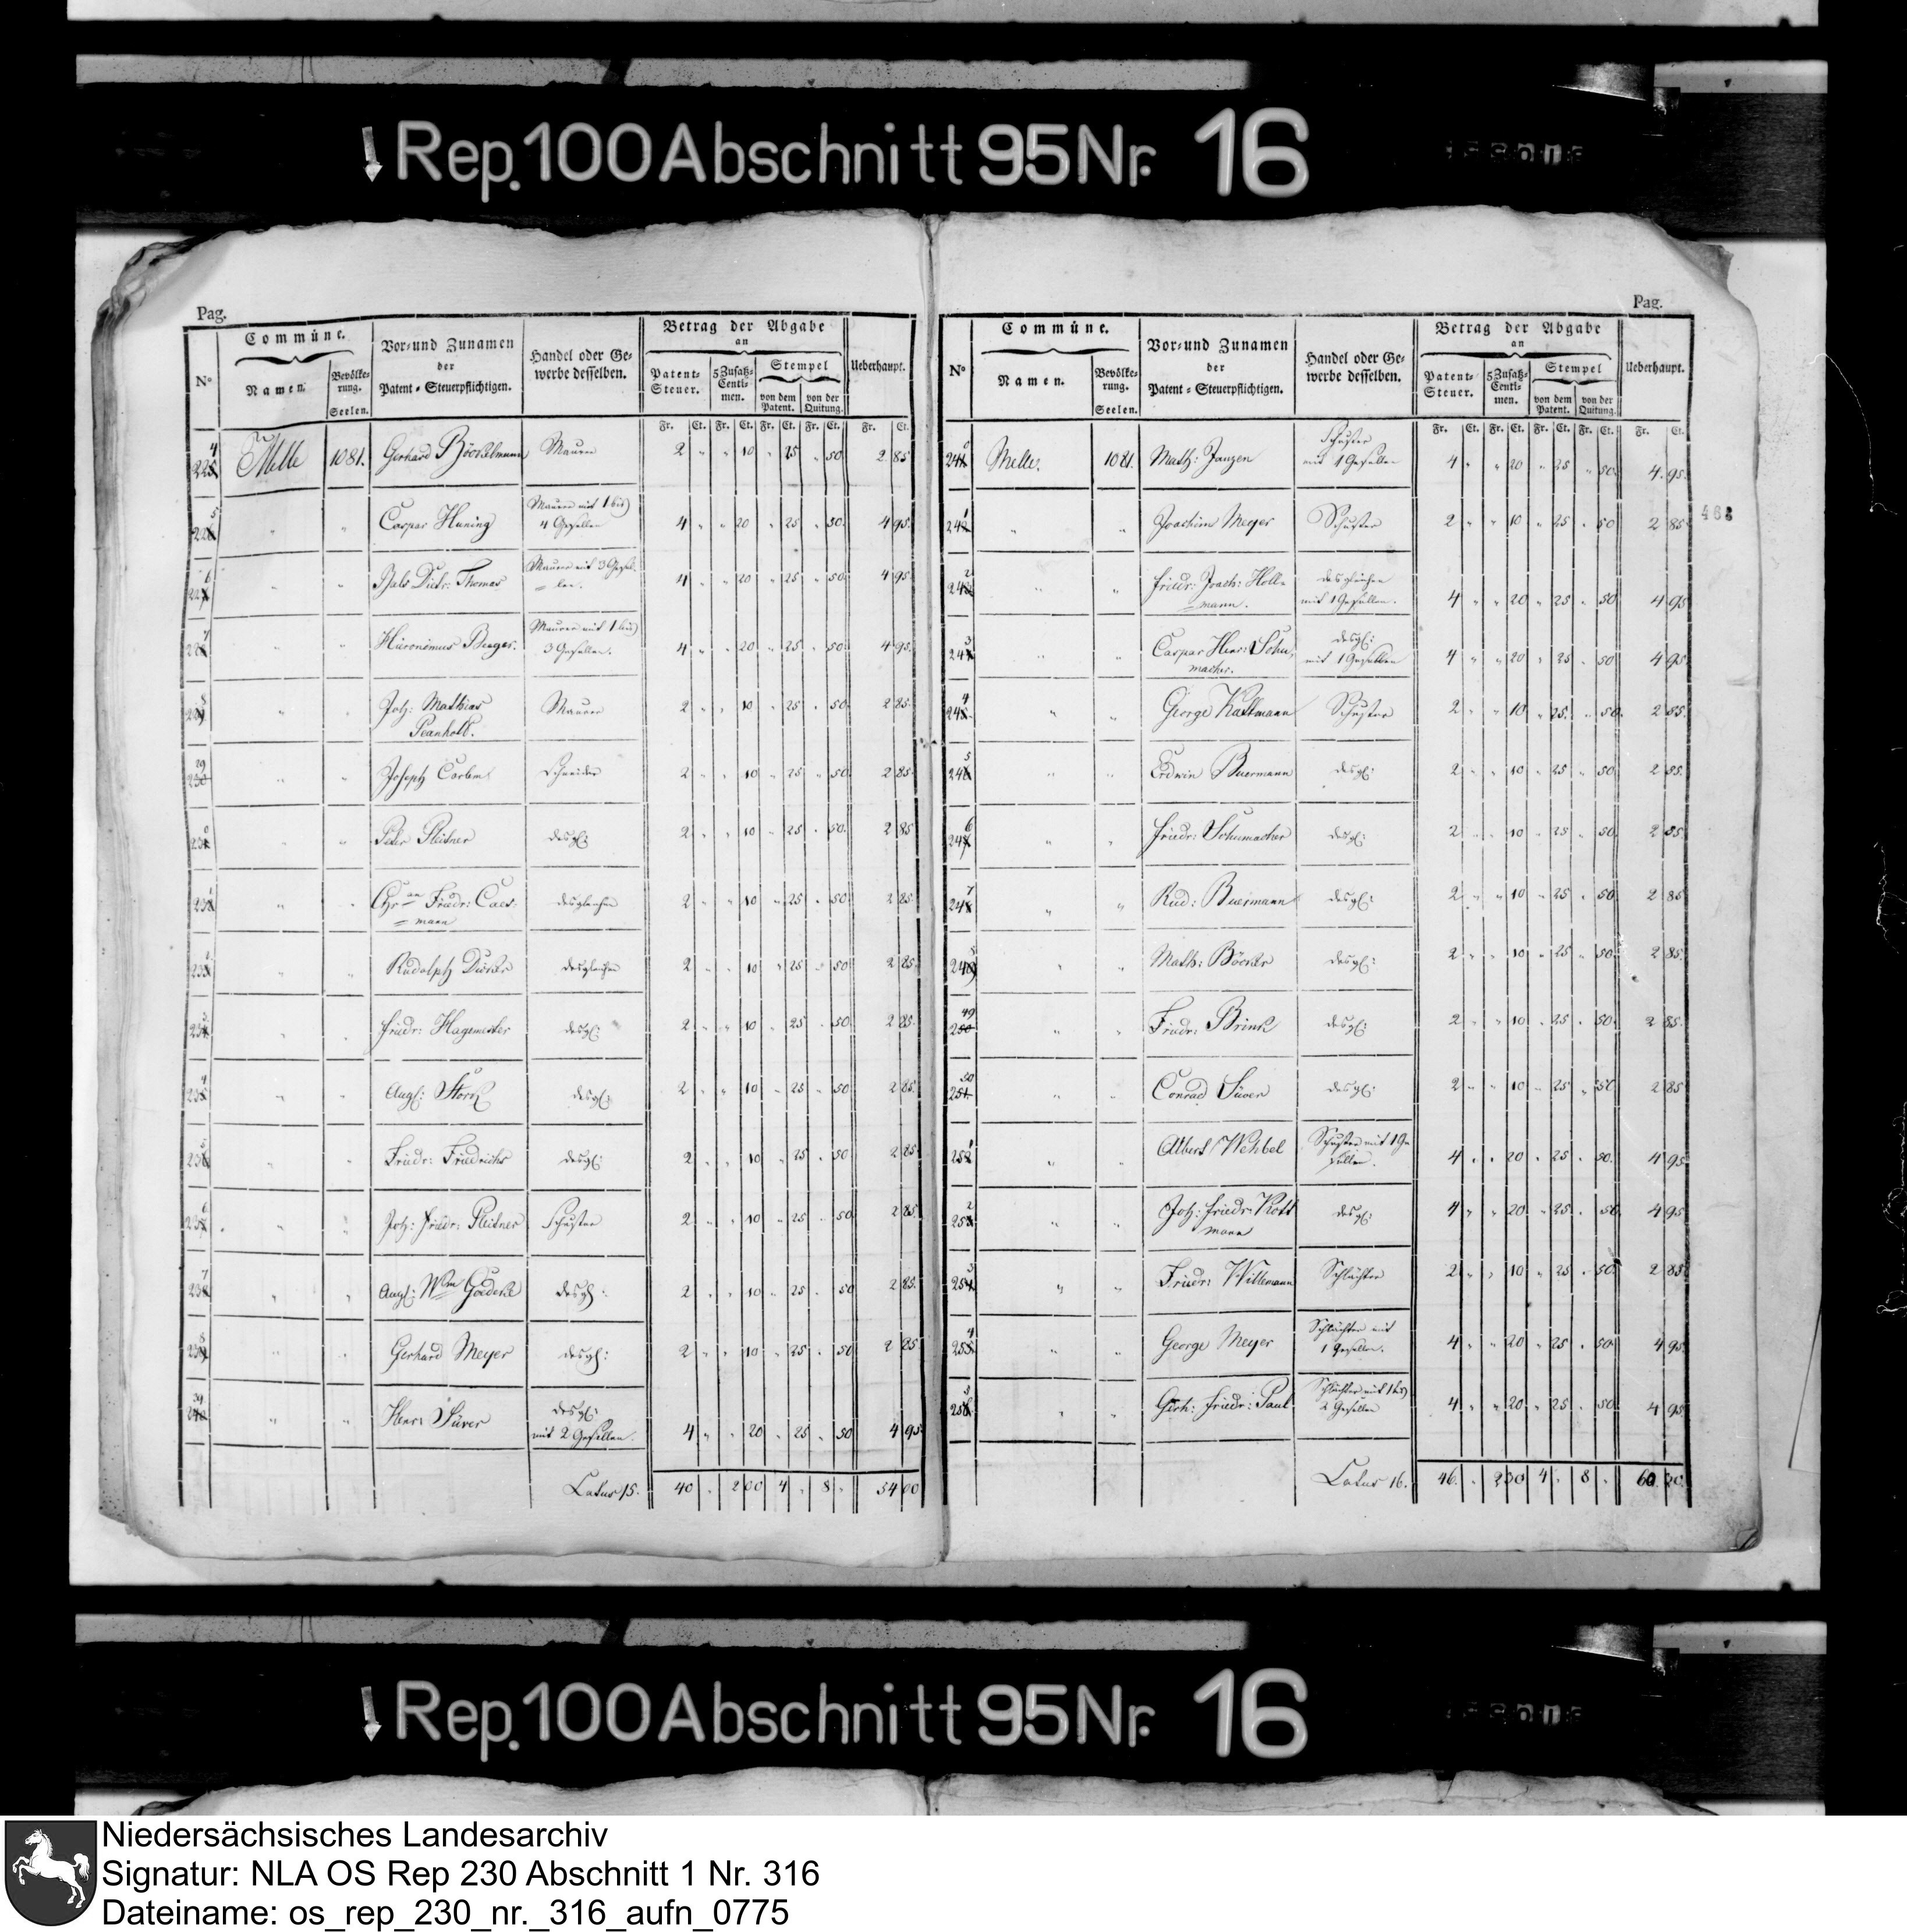 Rep. 100 Abschnitt 95 Nr. 16
Pag.
N° Commüne. Namen. Bevölkerung. Seelen. Vor- und Zunamen der Patent-Steuerpflichtigen. Handel oder Gewerbe desselben. Betrag der Abgabe an Patent-Steuer. 5 Zusatz-Centimen. Stempel von dem Patent. von der Quitung. Ueberhaupt.
Fr. Ct. Fr. Ct. Fr. Ct. Fr. Ct. Fr. Ct.
Melle 1081. Gerhard Böckelmann Maurer 2 " " 10 " 25 " 50 2 85
" " Caspar Huning Maurer mit 1 bis 4 Gesellen 4 " " 20 " 25 " 50 4 95
" " Dietr: Thomas Maurer mit 3 Gesellen. 4 " " 20 " 25 " 50 4 95
" " Hieronimus Maurer mit 1 bis 3 Gesellen. 4 " " 20 " 25 " 50 4 95
" " Joh: Mathias Maurer 2 " " 10 " 25 " 50 2 85
" " Joseph Schneider 2 " " 10 " 25 " 50 2 85
" " Peter Pleitner desgl: 2 " " 10 " 25 " 50 2 85
" " Friedr: Caesmann desgleichen 2 " " 10 " 25 " 50 2 85
" " Rudolph desgleichen 2 " " 10 " 25 " 50 2 85
" " Friedr: Hagemeister desgl: 2 " " 10 " 25 " 50 2 85
" " Augt: Stork desgl: 2 " " 10 " 25 " 50 2 85
" " Friedr: Friedrichs desgl: 2 " " 10 " 25 " 50 2 85
" " Joh: Friedr: Pleitner Schuster 2 " " 10 " 25 " 50 2 85
" " Augt: Wm Goedeke desgl: 2 " " 10 " 25 " 50 2 85
" " Gerhard Meyer desgl: 2 " " 10 " 25 " 50 2 85
" " Henr: Süver desgl: mit 2 Gesellen. 4 " " 20 " 25 " 50 4 95
Latus 15. 40 . 2 00 4 . 8 . 54 00
Pag.
N° Commüne. Namen. Bevölkerung. Seelen. Vor- und Zunamen der Patent-Steuerpflichtigen. Handel oder Gewerbe desselben. Betrag der Abgabe an Patent-Steuer. 5 Zusatz-Centimen. Stempel von dem Patent. von der Quitung. Ueberhaupt.
Fr. Ct. Fr. Ct. Fr. Ct. Fr. Ct. Fr. Ct.
Melle. 1081. Math: Janzen Schuster mit 1 Gesellen 4 " " 20 " 25 " 50 4 95
" " Joachim Meyer Schuster 2 " " 10 " 25 " 50 2 85
" " Friedr: Joach: Hollmann. desgleichen mit 1 Gesellen. 4 " " 20 " 25 " 50 4 95
" " Caspar Henr: Schumacher. desgl: mit 1 Gesellen 4 " " 20 " 25 " 50 4 95
" " George Kattmann Schuster 2 " " 10 " 25 " 50 2 85
" " Buermann desgl: 2 " " 10 " 25 " 50 2 85
" " Friedr: Schumacher desgl: 2 " " 10 " 25 " 50 2 85
" " Rud: Buermann desgl: 2 " " 10 " 25 " 50 2 85
" " Math: Böcker desgl: 2 " " 10 " 25 " 50 2 85
" " Friedr: Brink desgl: 2 " " 10 " 25 " 50 2 85
" " Conrad Süver desgl: 2 " " 10 " 25 " 50 2 85
" " Albert Wehbel Schuster mit 1 Gesellen. 4 " " 20 " 25 " 50 4 95
" " Joh: Friedr: Kottmann desgl: 4 " " 20 " 25 " 50 4 95
" " Friedr: Willemann Schlächter 2 " " 10 " 25 " 50 2 85
" " George Meyer Schlächter mit 1 Gesellen. 4 " " 20 " 25 " 50 4 95
" " Gerh: Friedr: Paul Schlächter mit 1 bis 2 Gesellen 4 " " 20 " 25 " 50 4 95
Latus 16. 46. . 2 30 4 . 8 . 60 30
Rep. 100 Abschnitt 95 Nr. 16
Niedersächsisches Landesarchiv
Signatur: NLA OS Rep 230 Abschnitt 1 Nr. 316
Dateiname: os_rep_230_nr._316_aufn_0775